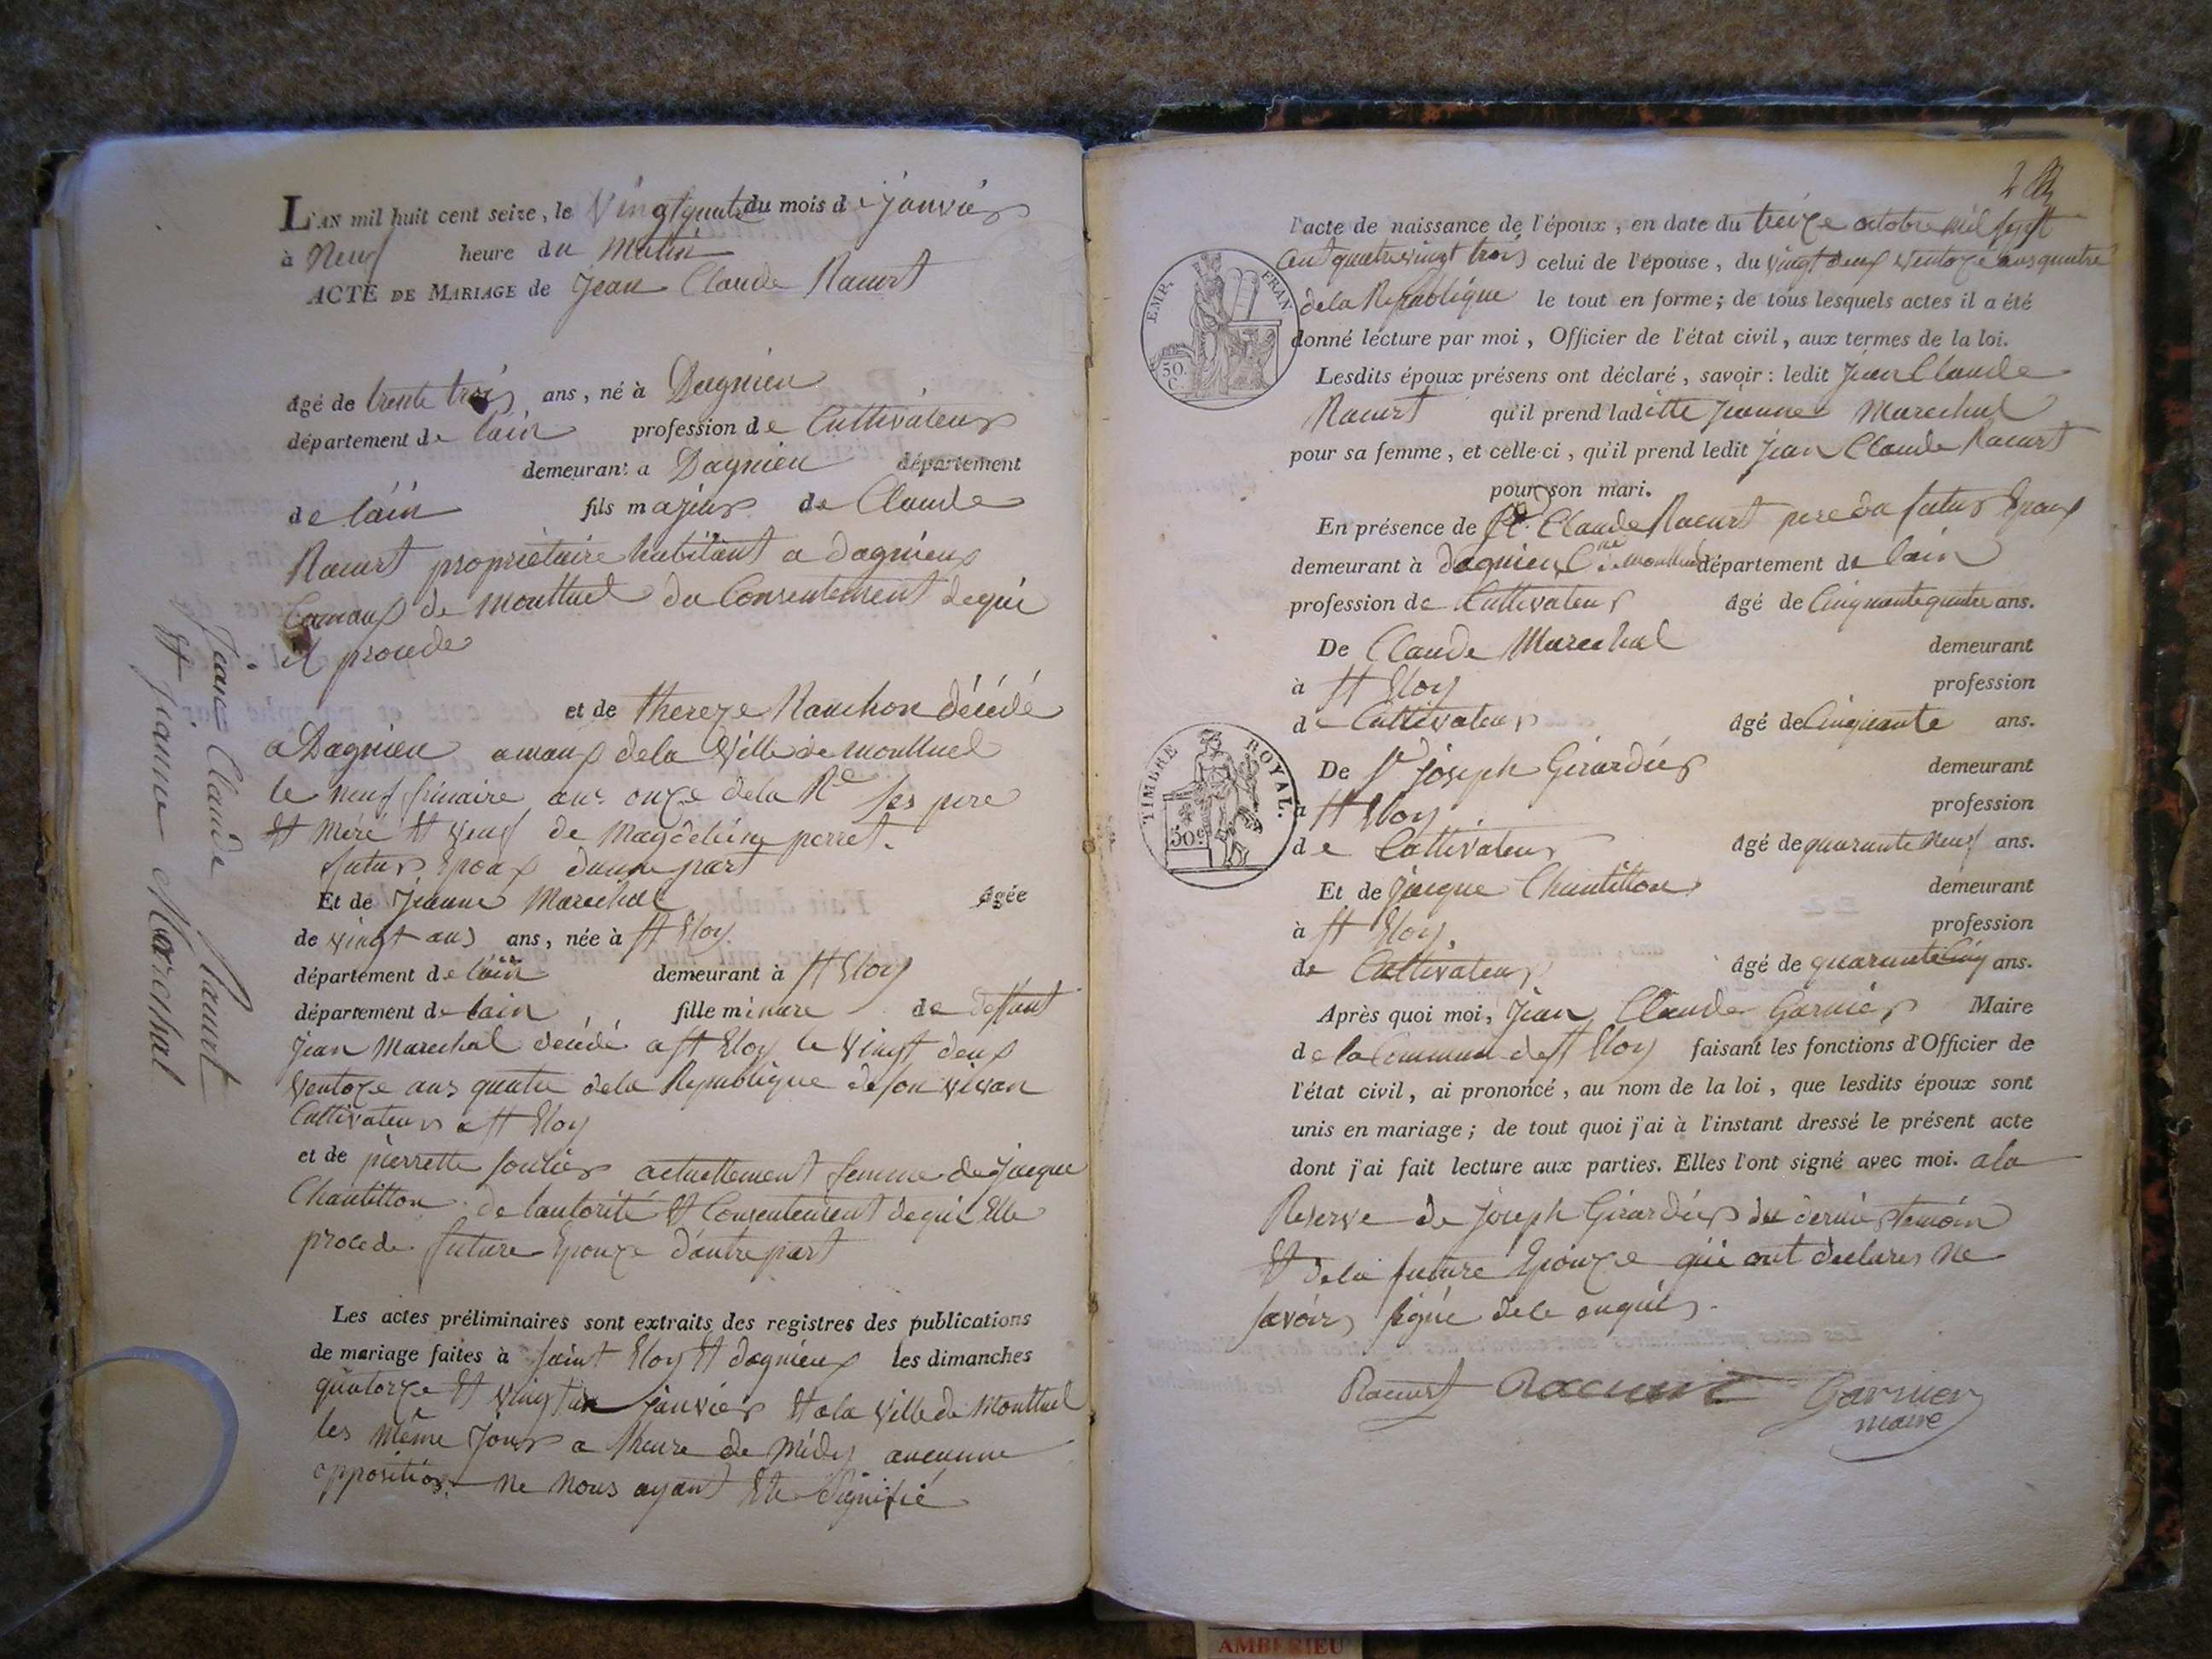 L'AN mil huit cent seize, le Vingtquatre du mois de janvier
à Neuf heure du Matin
ACTE DE MARIAGE de Jean Claude Racurt
âgé de trente trois ans, né à Dagnieu
département de lain profession de Cultivateur
demeurant a Dagnieu département
de lain fils majeur de Claude
Racurt propriétaire habitant a dagnieux
hamaux de Montluel du Consentement de qui
il procede
et de thereze Rauchon décédé
a Dagnieu amaux de la Ville de montluel
le neuf frimaire ans onze dela Re ses pere
Et Meré Et Veuf de Magdeleine perret.
futur Epoux daune part
Et de Jeanne Marechal âgée
de vingt ans ans, née à St Eloy
département de lain demeurant à St Eloy
département de lain fille mineure de deffunt
Jean Marechal décédé a St Eloy le Vingt deux
Ventoze ans quatre dela Republique de son vivan
Cultivateur a St Eloy
et de pierrette soulier actuellement femme de Jacque
Chantillon de lautorité Et Consentement de qui Elle
procede future Epouze dautre part
Les actes préliminaires sont extraits des registres des publications
de mariage faites à saint Eloy Et dagnieux les dimanches
quatorze Et vingt un janvier Et a la Ville de Montluel
les même Jour a lheure de Midy aucunne
opposition ne Nous ayant Ete Signifié
Jean Claude Racurt
Et Jeanne Marechal
l'acte de naissance de l'époux, en date du treize octobre mil sept
Cent quatre vingt trois celui de l'épouse, du vingt deux Ventoze ans quatre
dela Republique le tout en forme; de tous lesquels actes il a été
donné lecture par moi, Officier de l'état civil, aux termes de la loi.
Lesdits époux présens ont déclaré, savoir: ledit Jean Claude
Racurt qu'il prend laditte Jeanne Marechal
pour sa femme, et celle-ci, qu'il prend ledit Jean Claude Racurt
pour son mari.
En présence de Claude Racurt pere du futur Epoux
demeurant à dagnieux Cne de Montluel département de lain
profession de Cultivateur âgé de Cinquante quatre ans.
De Claude Marechal demeurant
à St Eloy profession
de Cultivateur âgé de Cinquante ans.
De Sr Joseph Girardier demeurant
à St Eloy profession
de Cultivateur âgé de quarante Neuf ans.
Et de Jacque Chantillon demeurant
à St Eloy profession
de Cultivateur âgé de quarante Cinq ans.
Après quoi moi, Jean Claude Garnier Maire
de la Commune de St Eloy faisant les fonctions d'Officier de
l'état civil, ai prononcé, au nom de la loi, que lesdits époux sont
unis en mariage; de tout quoi j'ai à l'instant dressé le présent acte
dont j'ai fait lecture aux parties. Elles l'ont signé avec moi. a la
Reserve de Joseph Girardier du dernier temoin
Et dela future Epouze qui ont declares Ne
savoir signé de ce
Racurt Racurt Garnier
maire
EMP. FRAN
50.
C.
TIMBRE ROYAL.
50c
AMBERIEU